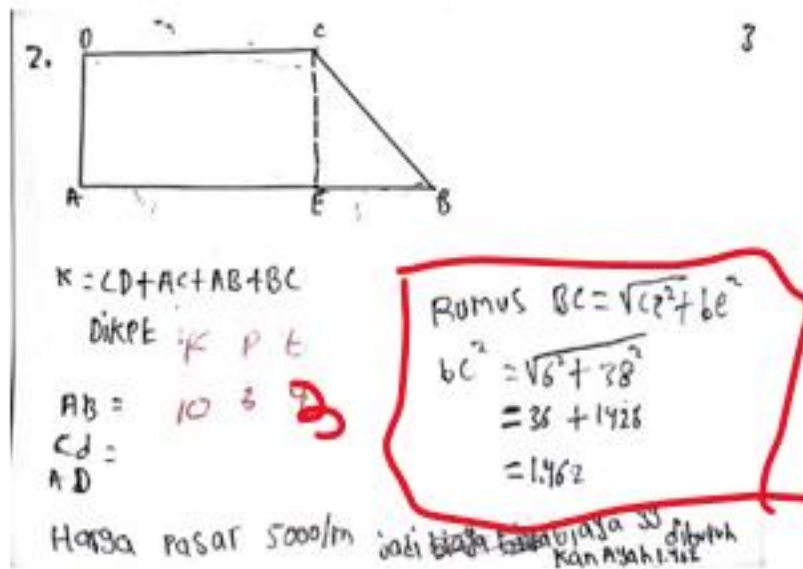 2.
3
D C
A E B
K = CD + AC + AB + BC
Diket
K P t
AB = 10 3
Cd =
AD
Rumus BC = √ce² + be²
bc² = √6² + 38²
= 36 + 1426
= 1.462
Harga pasar 5000/m jadi biaya yg dibutuh
kan Ayah 1.462